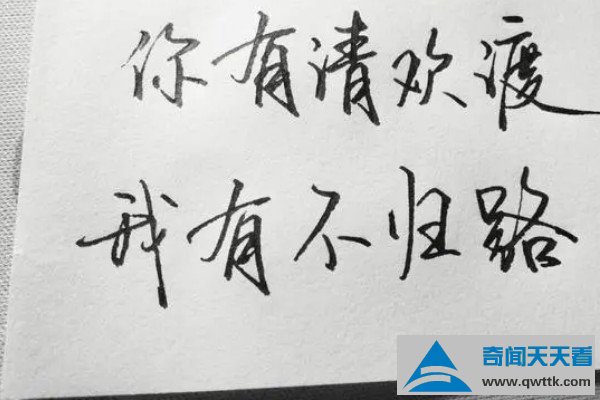 你有清欢渡
我有不归路
奇闻天天看
www.qwttk.com